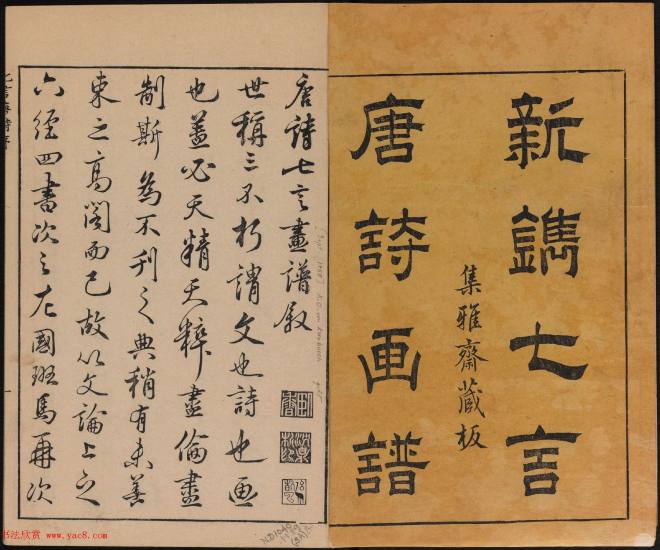 新鐫七言
集雅齋蔵板
唐詩画譜
唐詩七言畫譜敘
世稱三不朽謂文也詩也画
也蓋必天精天粹盡倫盡
制斯為不刊之典稍有未善
束之高阁而已故以文論上之
六經四書次之左國班馬再次
书法欣赏 www.yac8.com